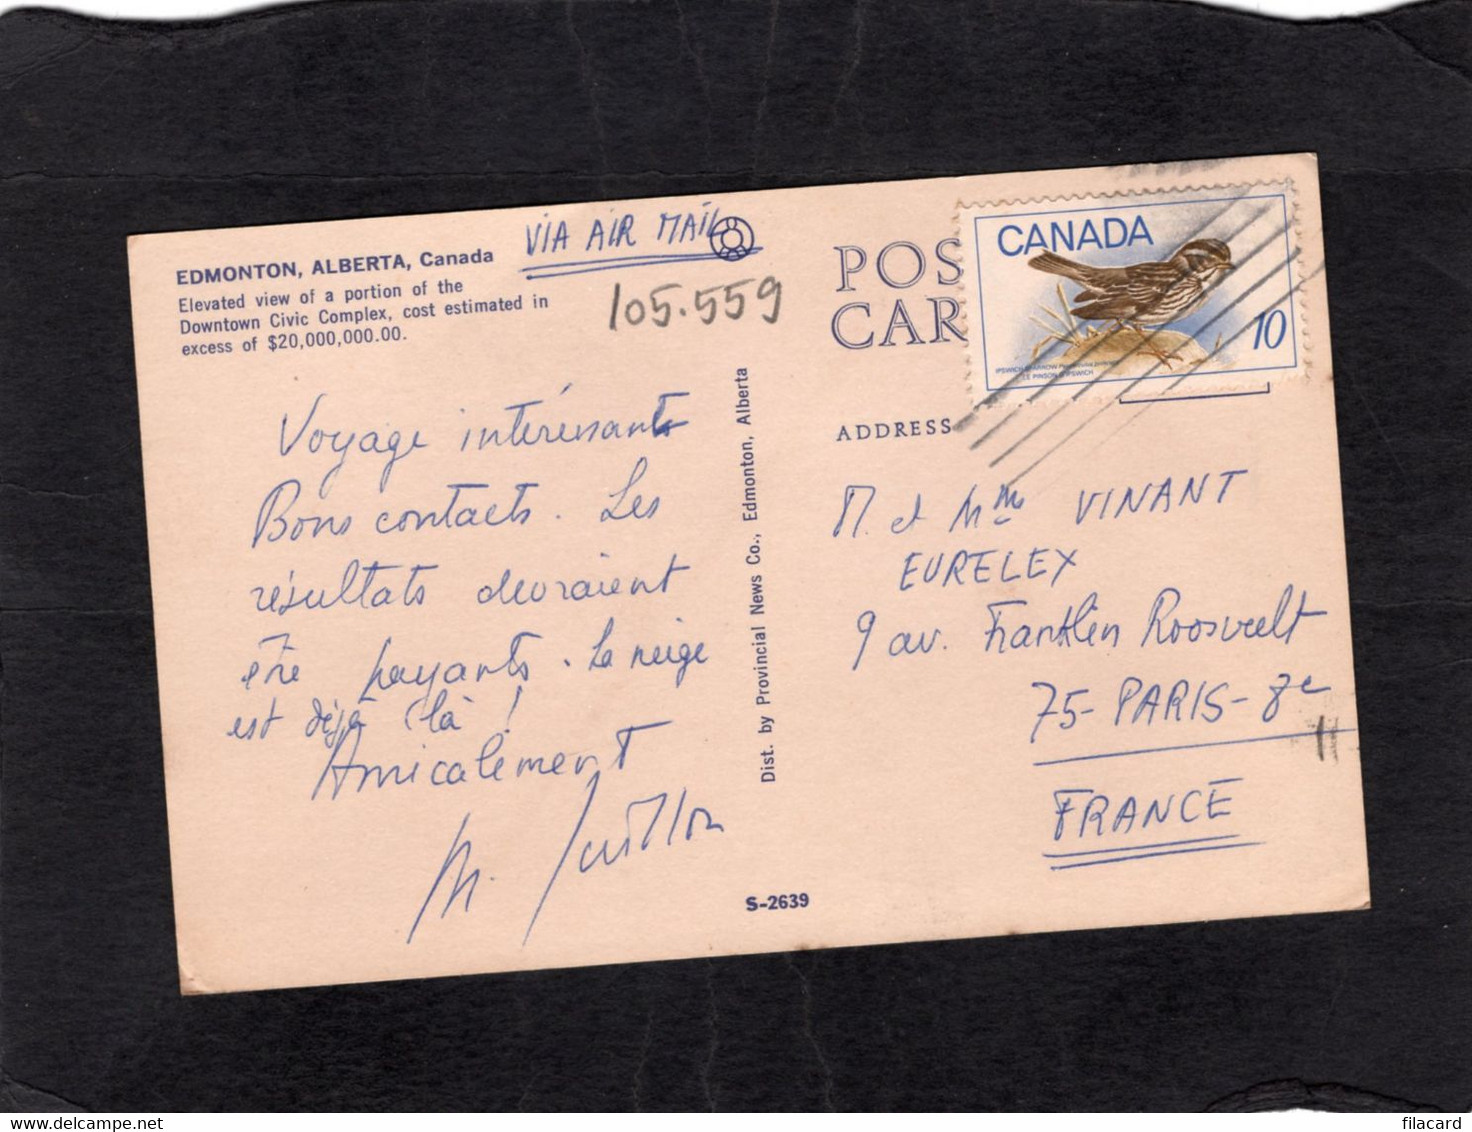 VIA AIR MAIL
EDMONTON, ALBERTA, Canada
Elevated view of a portion of the
Downtown Civic Complex, cost estimated in
excess of $20,000,000.00.
105.559
POS
CAR
CANADA
10
IPSWICH SPARROW
LE PINSON D'IPSWICH
ADDRESS
Voyage intéressant
Bons contacts. Les
résultats devraient
être payants. La neige
est déjà là !
Amicalement
Dist. by Provincial News Co., Edmonton, Alberta
M. et Mme VINANT
EURELEX
9 av. Franklin Roosvelt
75-PARIS-8e
FRANCE
S-2639
filacard.delcampe.net